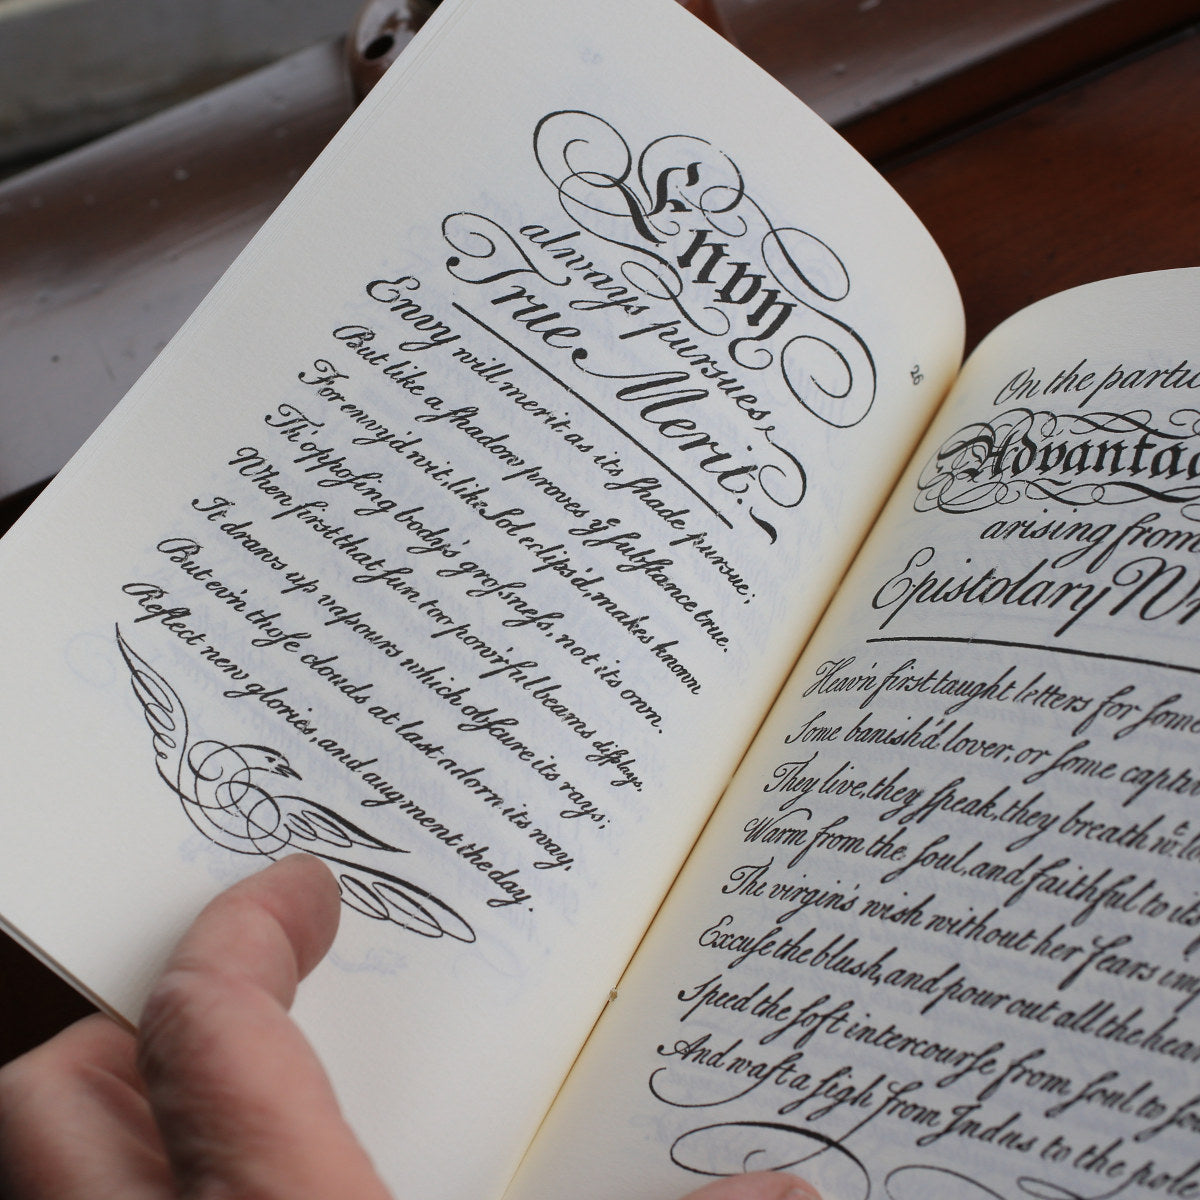 Envy
always pursues
True Merit.
Envy will merit as its ſhade purſue;
But like a ſhadow proves yᵉ ſubſtance true.
For envy'd wit, like Sol eclips'd, makes known
Th' oppoſing body's groſsneſs, not its own.
When first that ſun too pow'rful beams diſplays,
It draws up vapours which obſcure its rays;
But ev'n thoſe clouds at last adorn its way,
Reflect new glories, and augment the day.
26
On the
Advanta
arising from
Epistolary
Heav'n first taught letters for
Some banish'd lover, or ſome
They live, they ſpeak, they breath wᵗ
Warm from the ſoul, and faithful to
The virgin's wish without her fears
Excuſe the blush, and pour out all the
Speed the ſoft intercourſe from ſoul to
And waft a ſigh from Indus to the pole